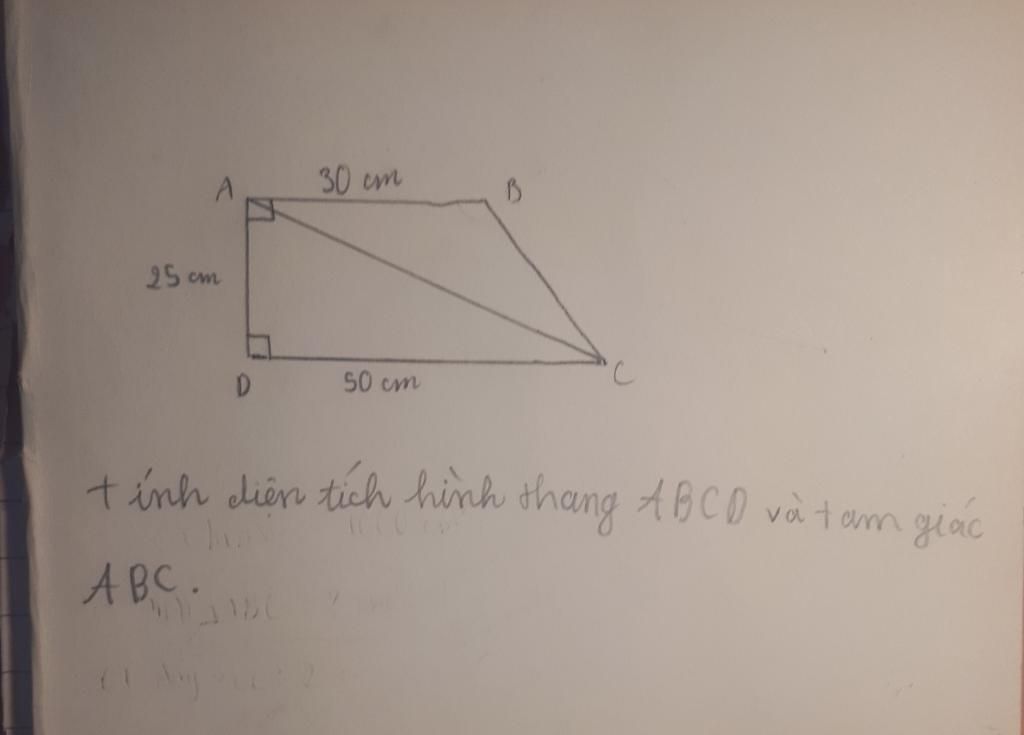 30 cm
A
B
25 cm
D
50 cm
C
tính diện tích hình thang ABCD và tam giác
ABC.